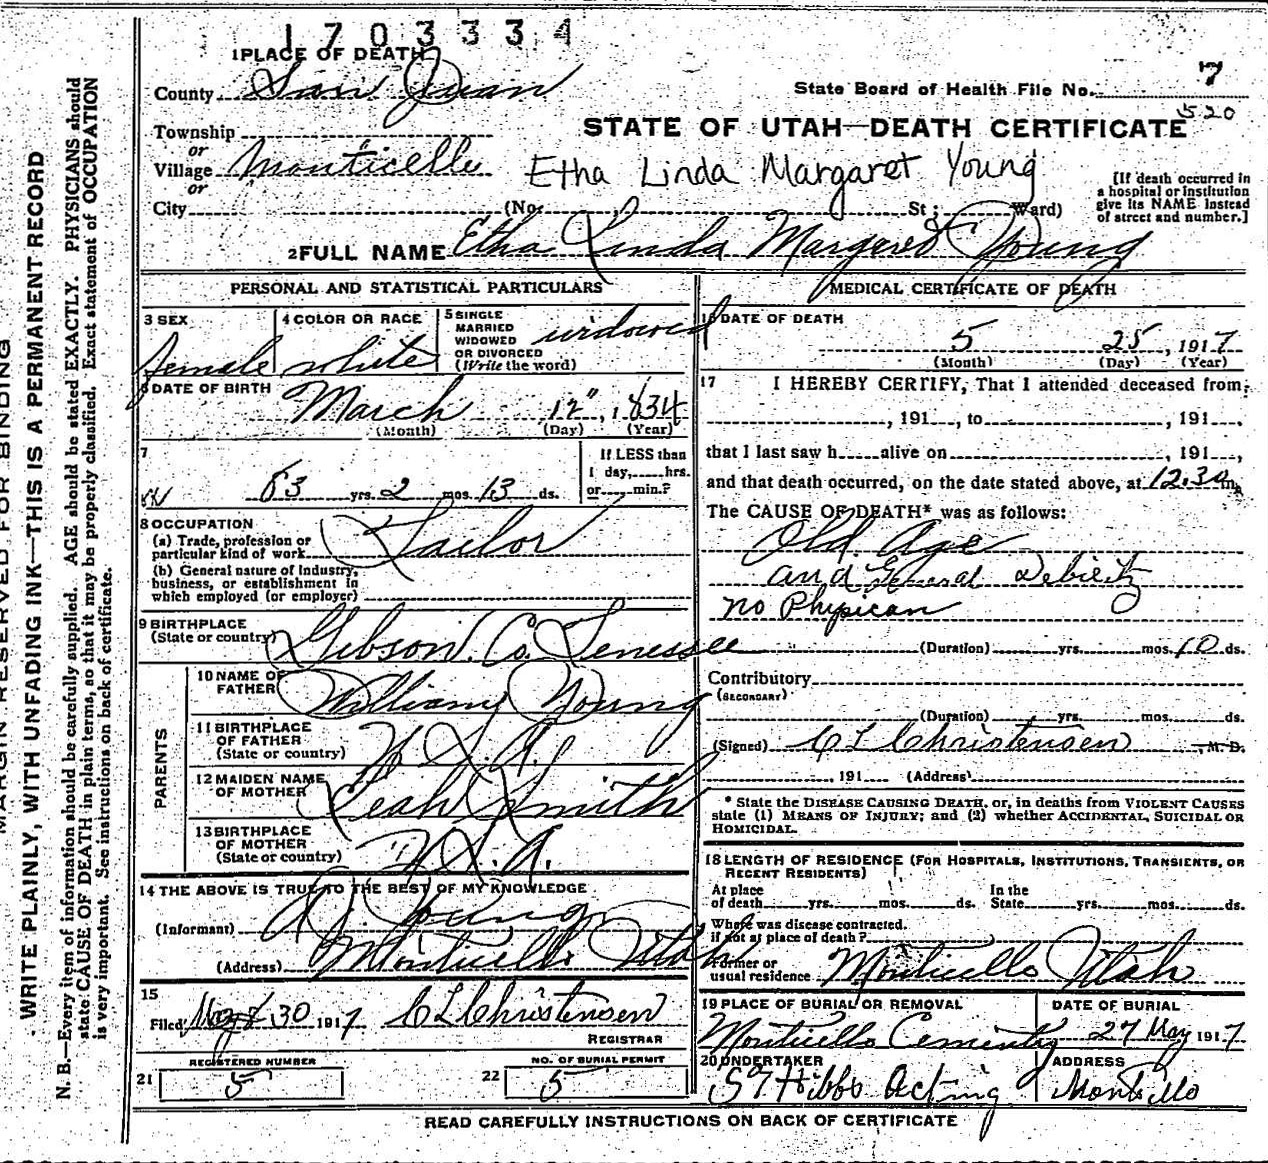 1703334
1 PLACE OF DEATH
County San Juan
State Board of Health File No. 7
520
Township
or
STATE OF UTAH—DEATH CERTIFICATE
Village Monticello
or
Etha Linda Margaret Young
[If death occurred in
a hospital or institution
give its NAME instead
of street and number.]
City (No. St; Ward)
2 FULL NAME Etha Linda Margaret Young
PERSONAL AND STATISTICAL PARTICULARS
3 SEX
female
4 COLOR OR RACE
white
5 SINGLE
MARRIED
WIDOWED
OR DIVORCED
(Write the word)
widowed
6 DATE OF BIRTH
March 12", 1834
(Month) (Day) (Year)
7
83 yrs. 2 mos. 13 ds.
If LESS than
1 day, hrs.
or min.?
8 OCCUPATION
(a) Trade, profession or
particular kind of work Tailor
(b) General nature of Industry,
business, or establishment in
which employed (or employer)
9 BIRTHPLACE
(State or country) Gibson. Co. Tenessee
PARENTS
10 NAME OF
FATHER William Young
11 BIRTHPLACE
OF FATHER
(State or country) U.S.A.
12 MAIDEN NAME
OF MOTHER Leah Smith
13 BIRTHPLACE
OF MOTHER
(State or country) U.S.A.
14 THE ABOVE IS TRUE TO THE BEST OF MY KNOWLEDGE
(Informant) Young
(Address) Monticello Utah
15
Filed May 30 1917 C L Christensen
REGISTRAR
REGISTERED NUMBER
21 5
NO. OF BURIAL PERMIT
22 5
MEDICAL CERTIFICATE OF DEATH
16 DATE OF DEATH
5 25, 1917
(Month) (Day) (Year)
17 I HEREBY CERTIFY, That I attended deceased from
, 191 , to , 191 .
that I last saw h alive on , 191 ,
and that death occurred, on the date stated above, at 12.30 m.
The CAUSE OF DEATH* was as follows:
Old Age
and General Debielty
no Phypican
(Duration) yrs. mos. 10 ds.
Contributory
(SECONDARY)
(Duration) yrs. mos. ds.
(Signed) C L Christensen , M. D.
, 191 (Address)
* State the DISEASE CAUSING DEATH, or, in deaths from VIOLENT CAUSES
state (1) MEANS OF INJURY; and (2) whether ACCIDENTAL, SUICIDAL OR
HOMICIDAL.
18 LENGTH OF RESIDENCE (FOR HOSPITALS, INSTITUTIONS, TRANSIENTS, OR
RECENT RESIDENTS)
At place
of death yrs. mos. ds.
In the
State yrs. mos. ds.
Where was disease contracted.
if not at place of death?
Former or
usual residence Monticello Utah
19 PLACE OF BURIAL OR REMOVAL
Monticello Cementry
DATE OF BURIAL
27 May 1917
20 UNDERTAKER
S T Hibbs Acting
ADDRESS
Montillo
READ CAREFULLY INSTRUCTIONS ON BACK OF CERTIFICATE
MARGIN RESERVED FOR BINDING
WRITE PLAINLY, WITH UNFADING INK—THIS IS A PERMANENT RECORD
N. B.—Every item of information should be carefully supplied. AGE should be stated EXACTLY. PHYSICIANS should
state CAUSE OF DEATH in plain terms, so that it may be properly classified. Exact statement of OCCUPATION
is very important. See instructions on back of certificate.